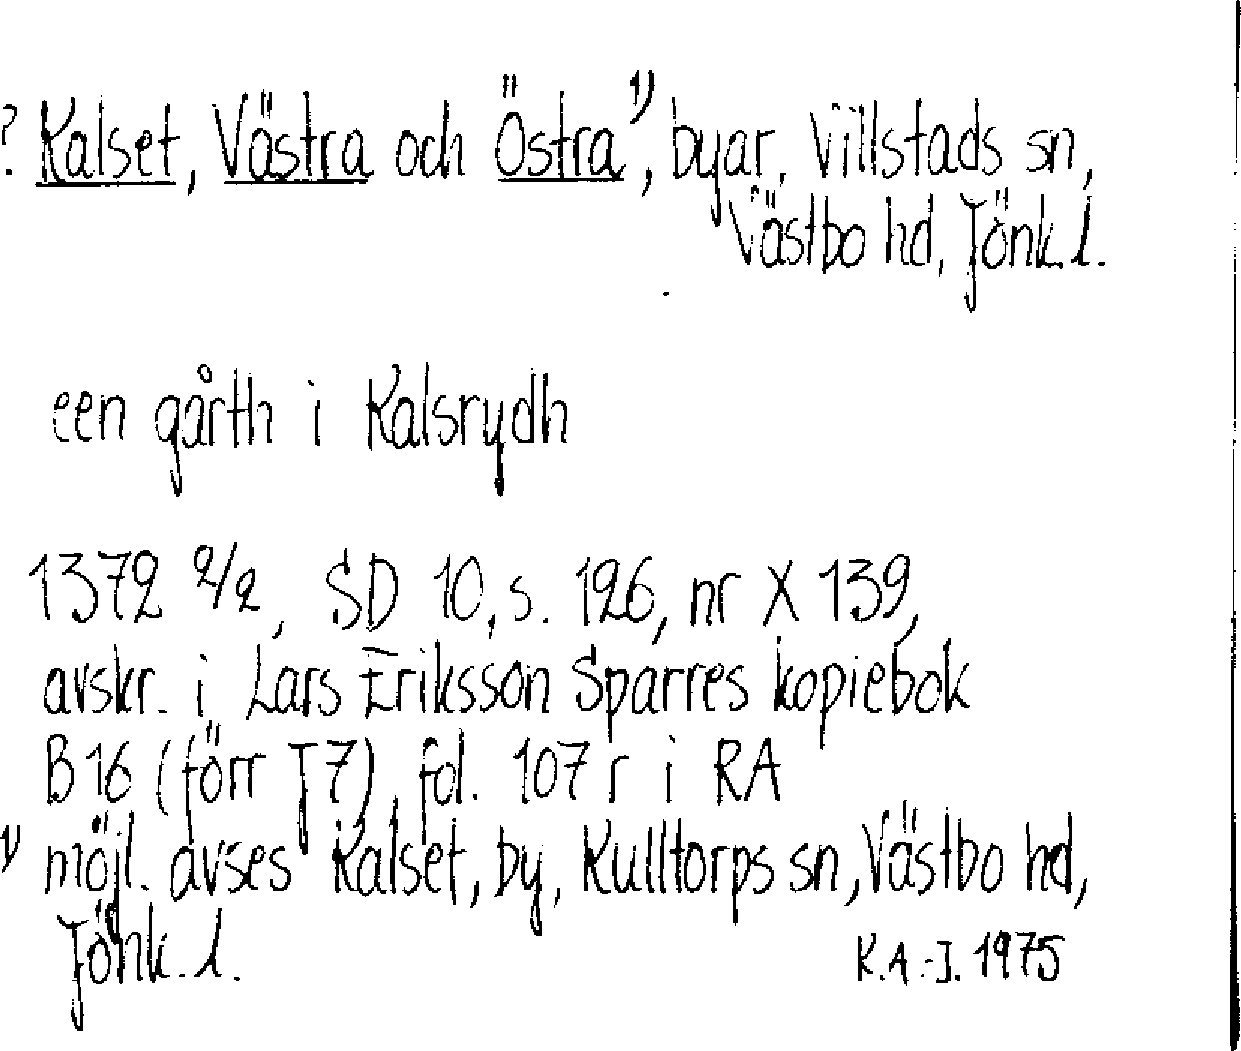 ? Kalset, Västra och Östra 1), byar, Villstads sn,
Västbo hd, Jönk. l.
een gårth i Kalsrydh
1372 2/2, SD 10, s. 126, nr X 139,
avskr. i Lars Eriksson Sparres kopiebok
B 16 (förr J 7), fol. 107 r i RA
1) möjl. avses Kalset, by, Kulltorps sn, Västbo hd,
Jönk. l.
K.A.-J. 1975